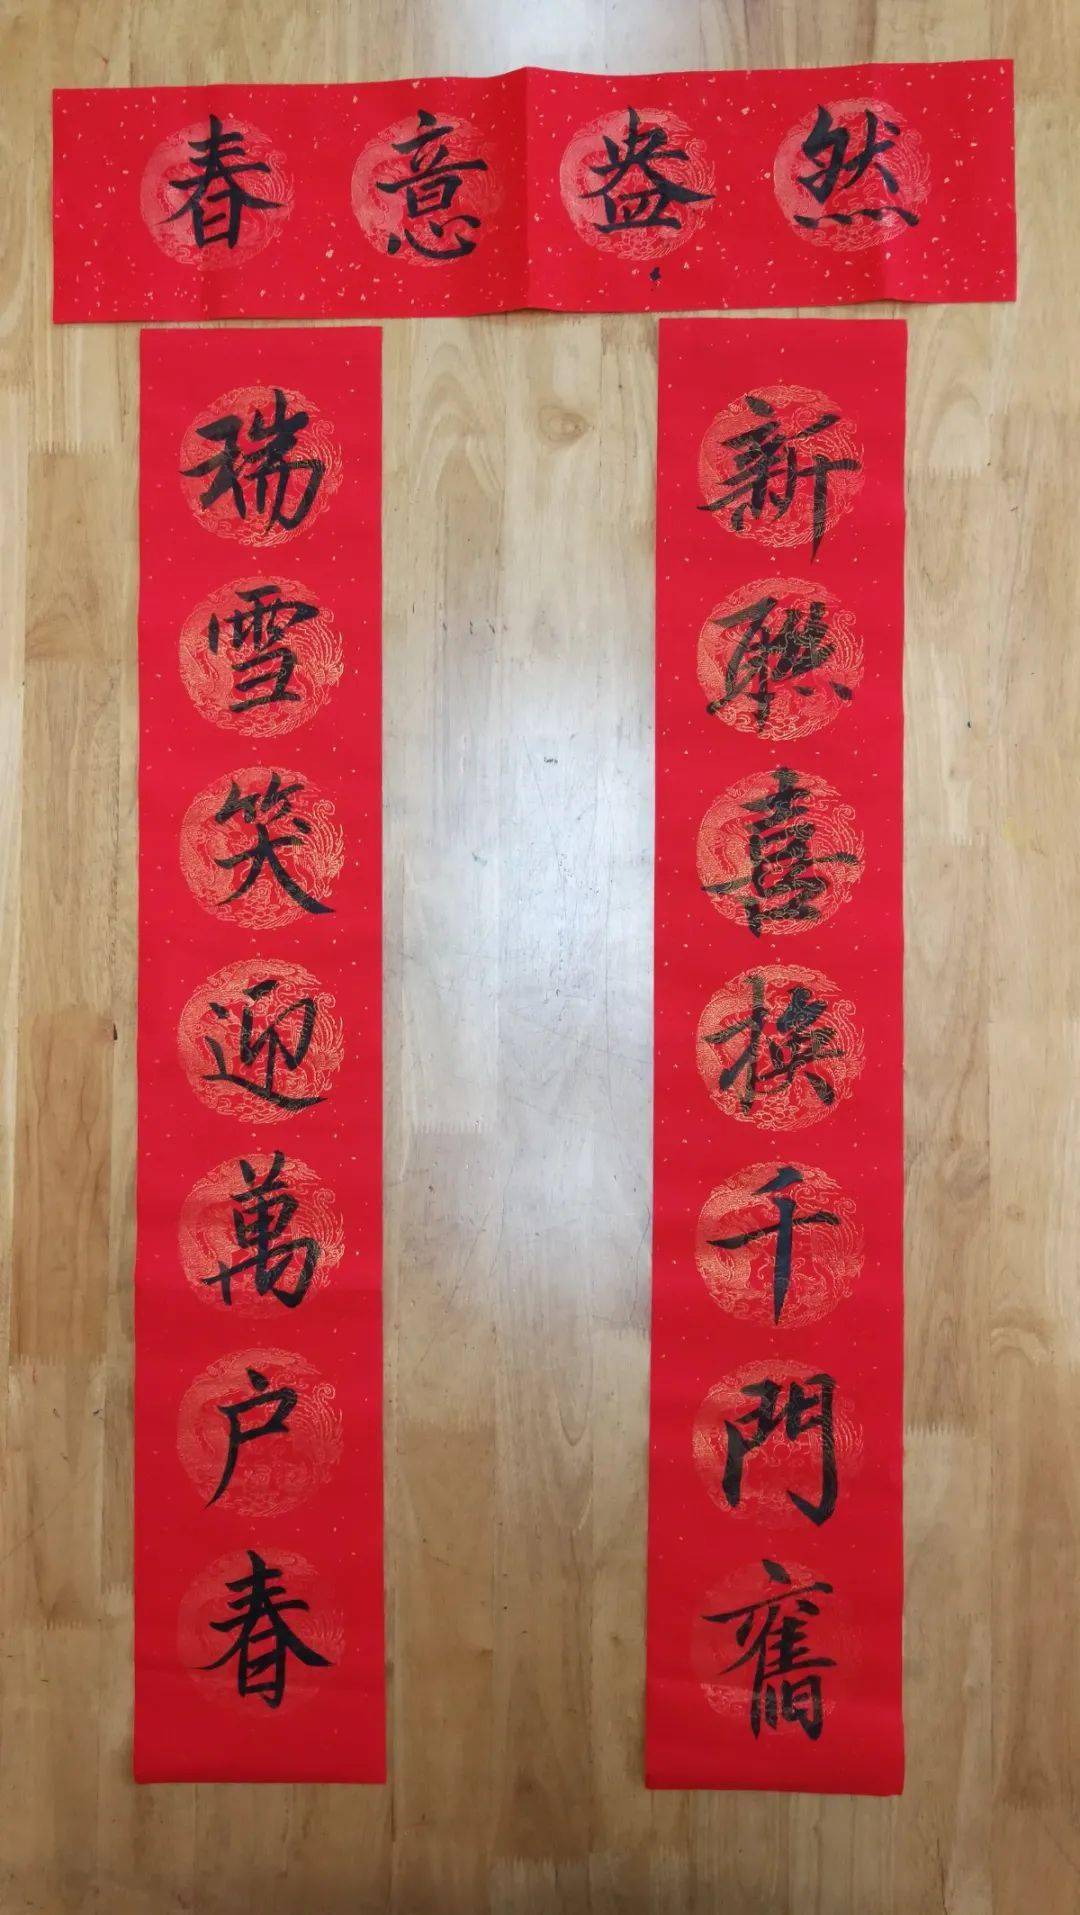 春意盎然
新聯喜换千門舊
瑞雪笑迎萬户春